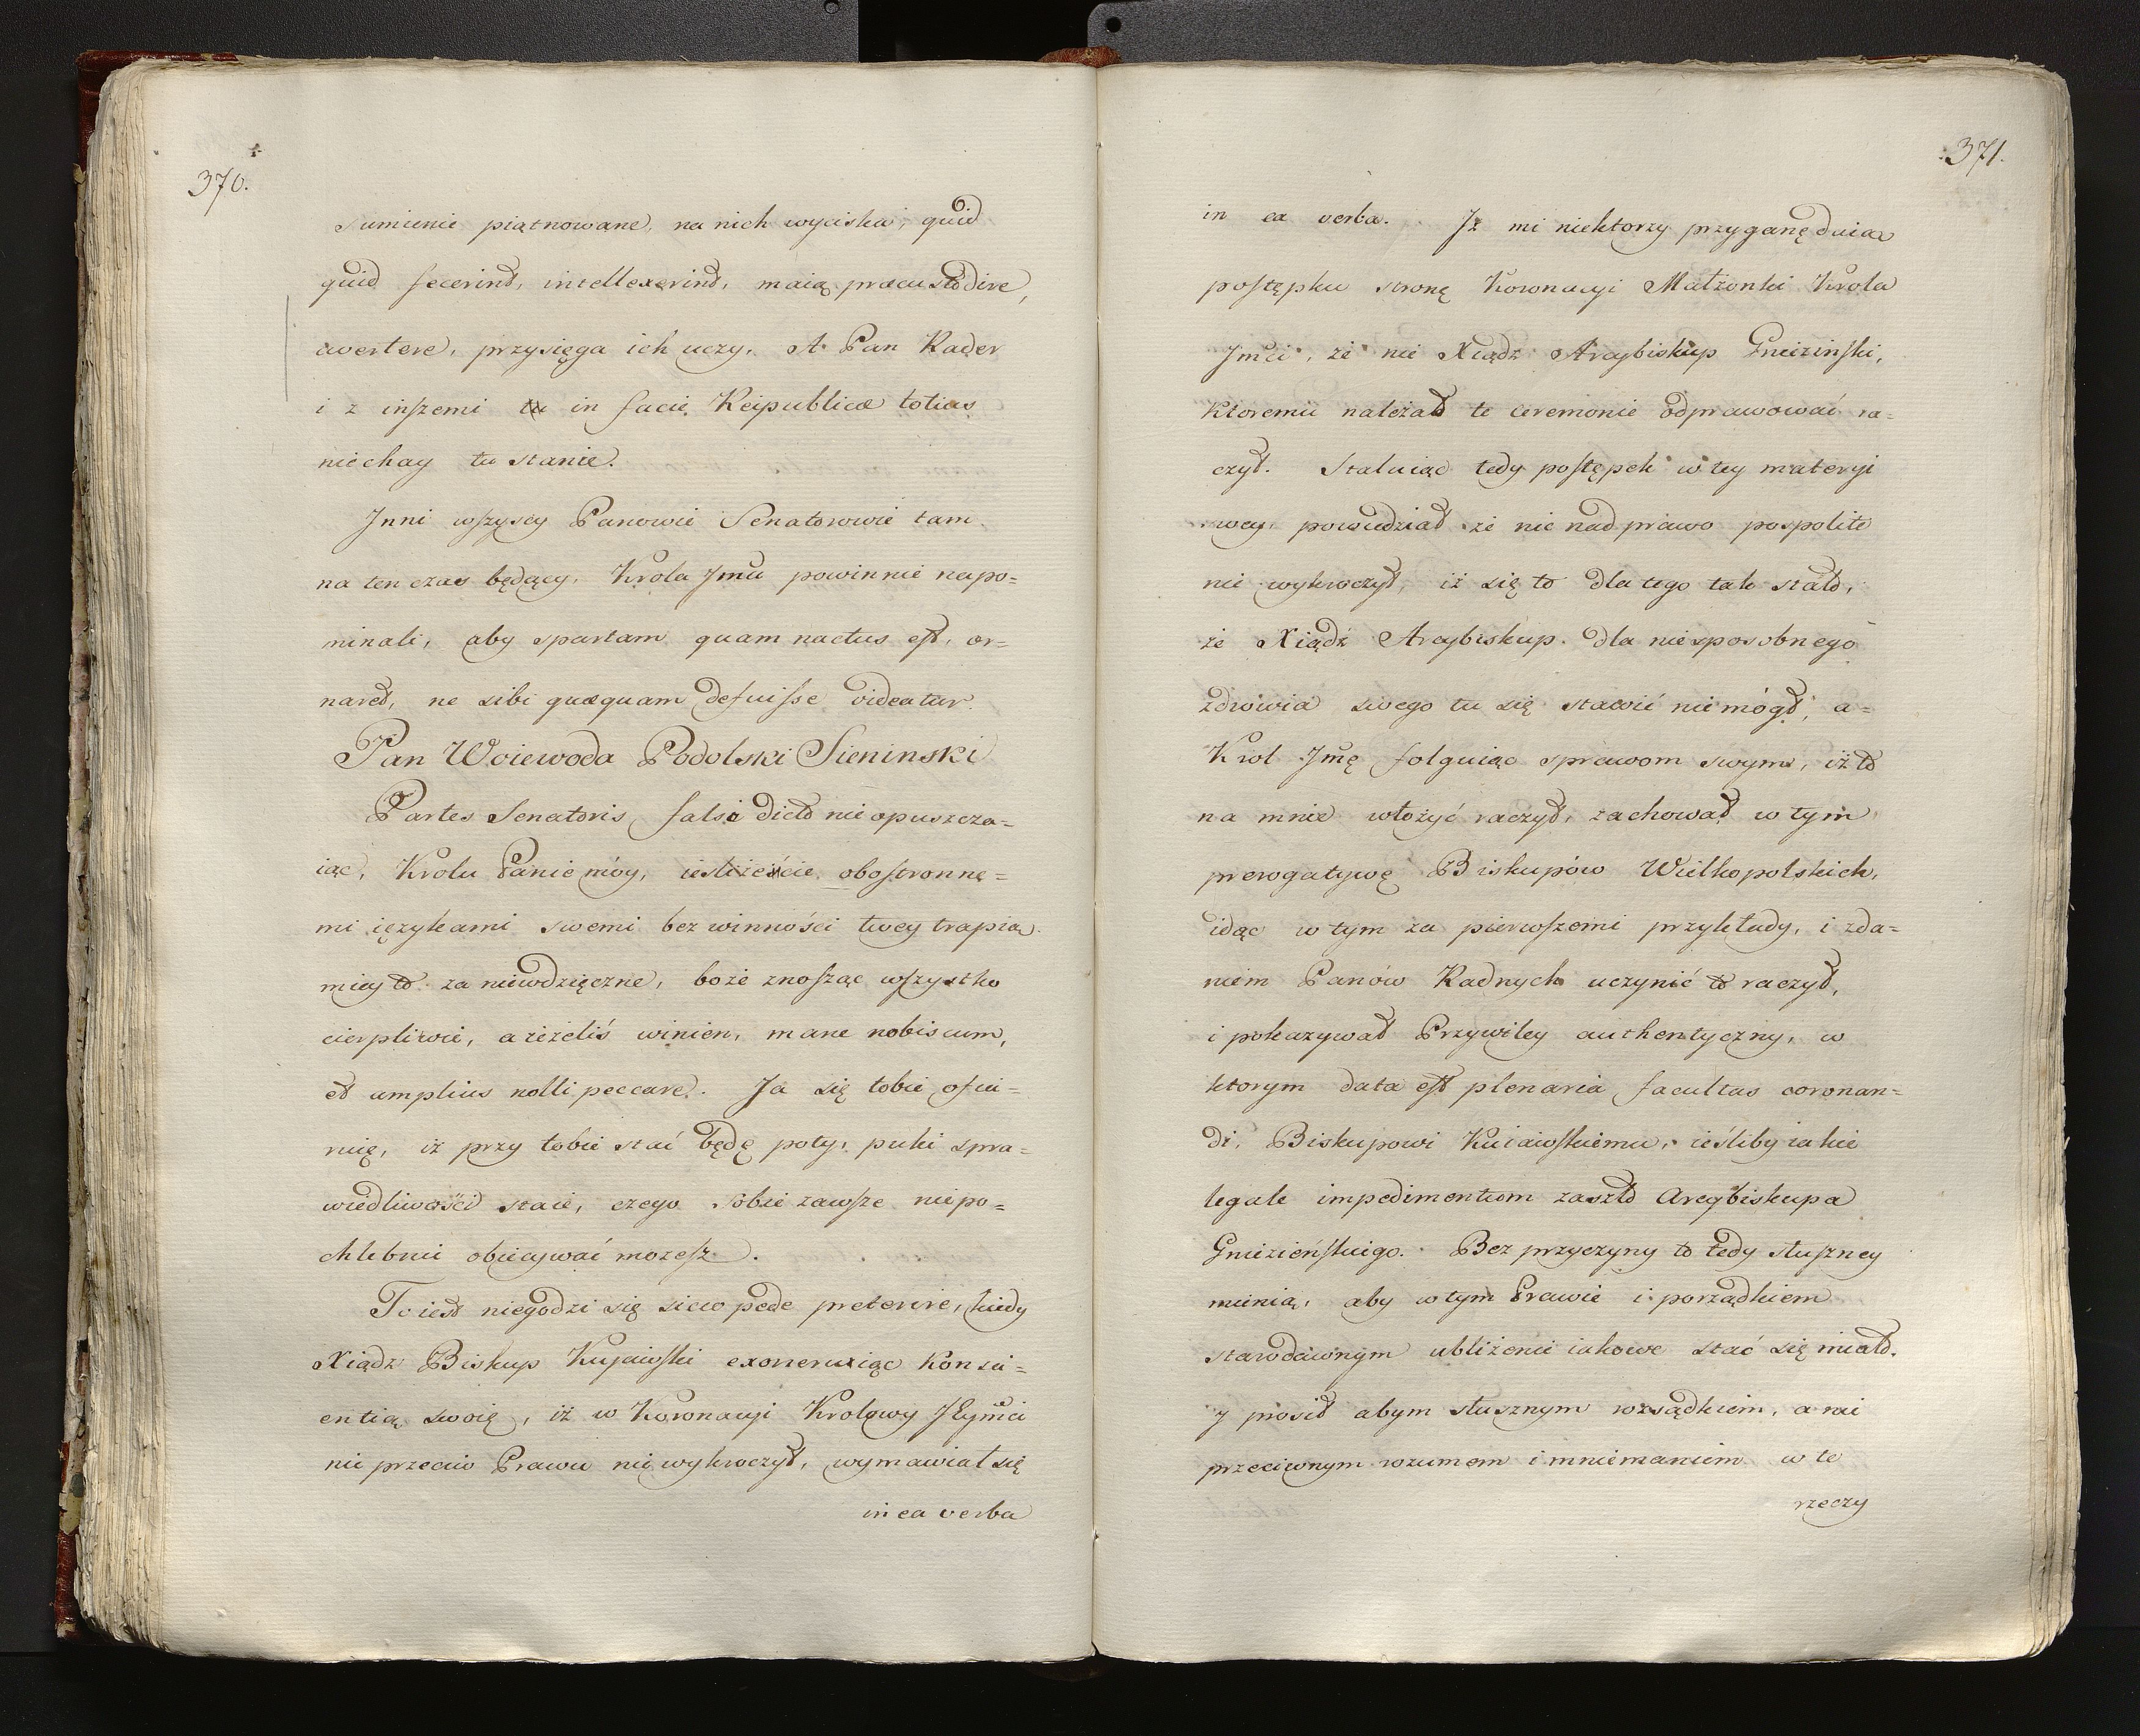 370.
sumienie piątnowane, na nich wyciska, quid
quid fecerint, intellexerint, maią præcustodire,
avertere, przysięga ich uczy. A Pan Rader
i z inszemi tu in facie Reipublicæ totius
niechay tu stanie.
Inni wszyscy Panowie Senatorowie tam
na ten czas będący, Krola Jmci powinnie napo=
minali, aby spartam quam nactus est, or=
naret, ne sibi quæquam defuisse videatur.
Pan Woiewoda Podolski Sieninski
Partes Senatoris falsi dicto nie opuszcza=
iąc, Krolu Panie móy, ieśliżeście obostronne=
mi ięzykami swemi bez winności twey trapią
miey to za niewdzięczne, boże znosząc wszystko
cierpliwie, a ieżeliś winien, mane nobiscum,
et amplius nolli peccare. Ja się tobie ofia=
ruię, iż przy tobie stać będę poty, puki spra=
wiedliwości staie, czego sobie zawsze niepo=
chlebnie obiecywać możesz.
To iest niegodzi się sicco pede preterire, kiedy
Xiądz Biskup Kujawski exoneruiąc Konsci=
entią swoię, iż w Koronacyi Krolowy JEymci
nic przeciw Prawu nie wykroczył, wymawiał się
in ea verba
371.
in ea verba. Iż mi niektorzy przyganę daią
postępku stronę Koronacyi Małżonki Krola
Jmci, że nie Xiądz Arcybiskup Gnieziński,
Ktoremu należał te ceremonie odprawować ra=
czył. Staluiąc tedy postępek w tey materyi
swey, powiedział że nic nad prawo pospolite
nie wykroczył, iż się to dla tego tak stało,
że Xiądz Arcybiskup dla niesposobnego
zdrowia swego tu się stawić nie mógł, a=
Krol Jmę folguiąc sprawom swym, iż to
na mnie włożyć raczył, zachował w tym
prerogatywę Biskupów Wielkopolskich,
idąc w tym za pierwszemi przykłady, i zda=
niem Panów Radnych uczynić to raczył,
i pokazywał Przywiley authentyczny, w
ktorym data est plenaria facultas coronan=
di, Biskupowi Kuiawskiemu, ieśliby iakie
legale impedimentum zaszło Arcybiskupa
Gnieźieńskiego. Bez przyczyny to tedy słuszney
mienią, aby w tym Prawie i porządkiem
starodawnym ubliżenie iakowe stać się miało.
y prosił abym słusznym rozsądkiem, a nie
przeciwnym rozumem i mniemaniem w te
rzeczy